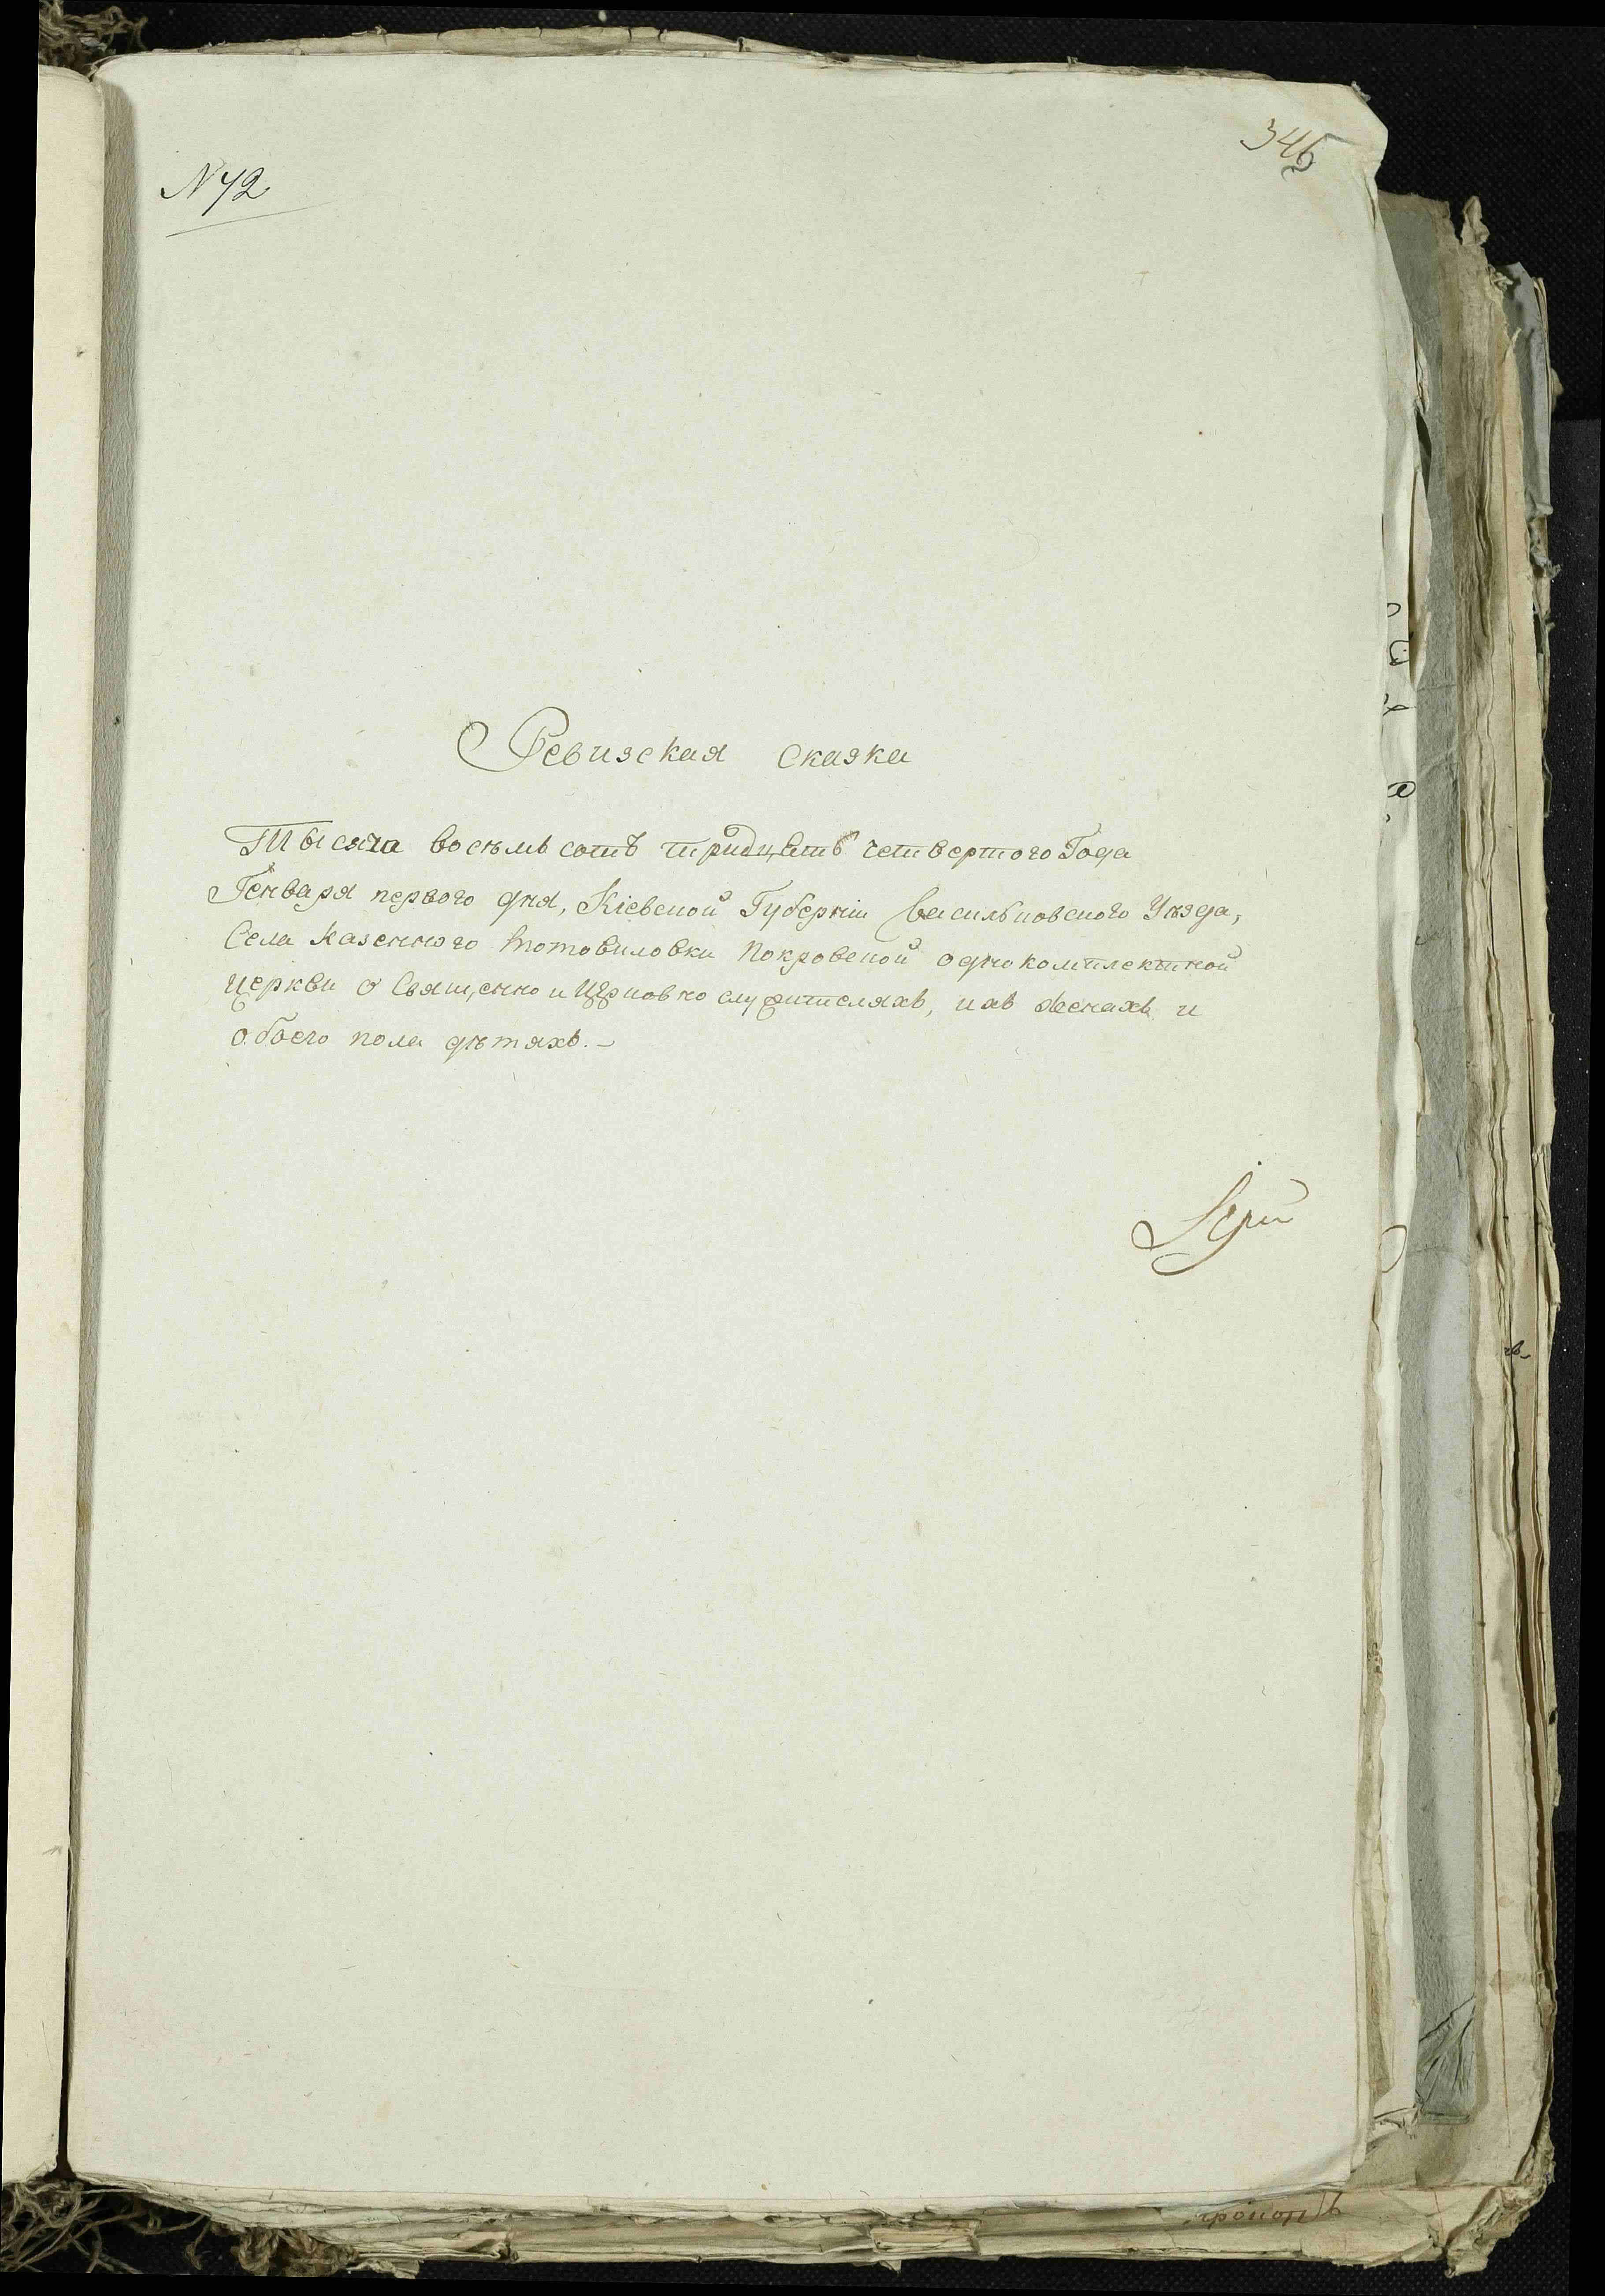 346
N 72
Ревизская сказка
Тысяча восемь сотъ тридцать четвертого Года
Генваря первого дня, Кіевской Губерніи Васильковского Уѣзда,
Села Казенного Мотовиловки Покровской однокомплектной
церкви о Священно и Церковно служителяхъ, ихъ женахъ и
обоего пола дѣтяхъ. –